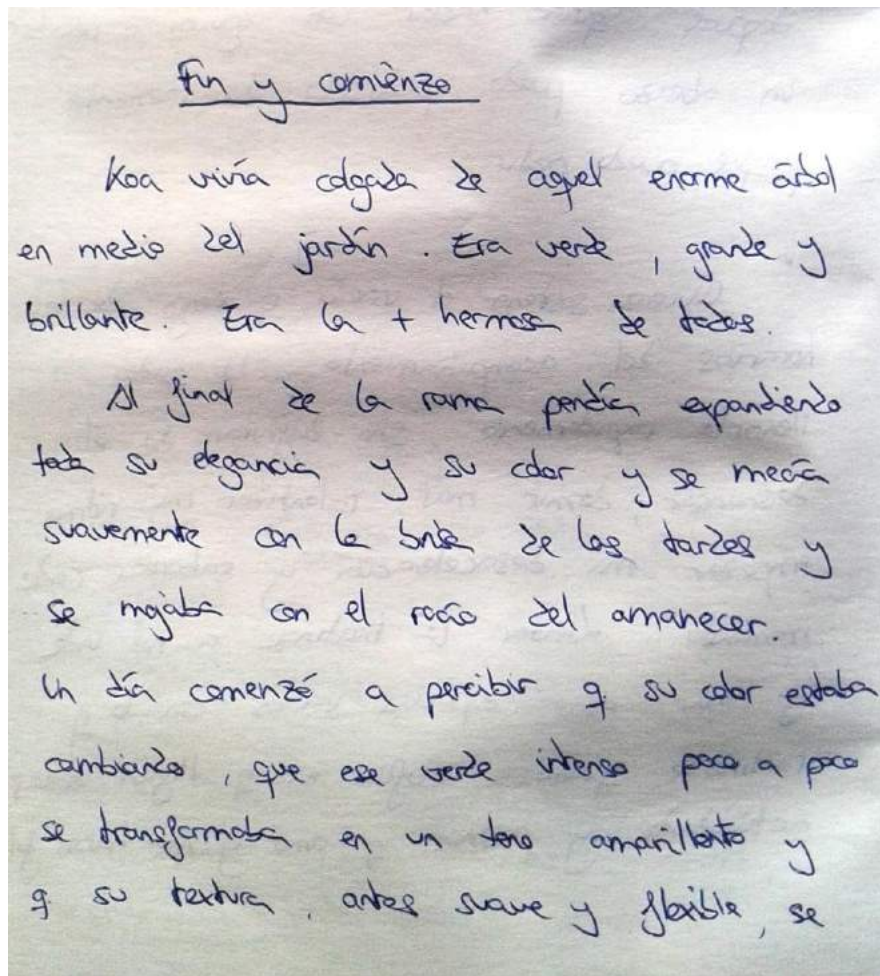 Fin y comienzo
Koa vivía colgada de aquel enorme árbol
en medio del jardín. Era verde, grande y
brillante. Era la + hermosa de todas.
Al final de la rama pendía expandiendo
toda su elegancia y su color y se mecía
suavemente con la brisa de las tardes y
se mojaba con el rocío del amanecer.
Un día comenzó a percibir q su color estaba
cambiando, que ese verde intenso poco a poco
se transformaba en un tono amarillento y
q su textura, antes suave y flexible, se